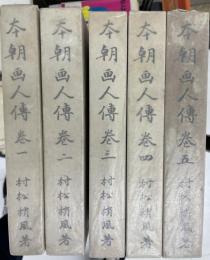 本朝画人傳 巻一 村松梢風著
本朝画人傳 巻二 村松梢風著
本朝画人傳 巻三 村松梢風著
本朝画人傳 巻四 村松梢風著
本朝画人傳 巻五 村松梢風著